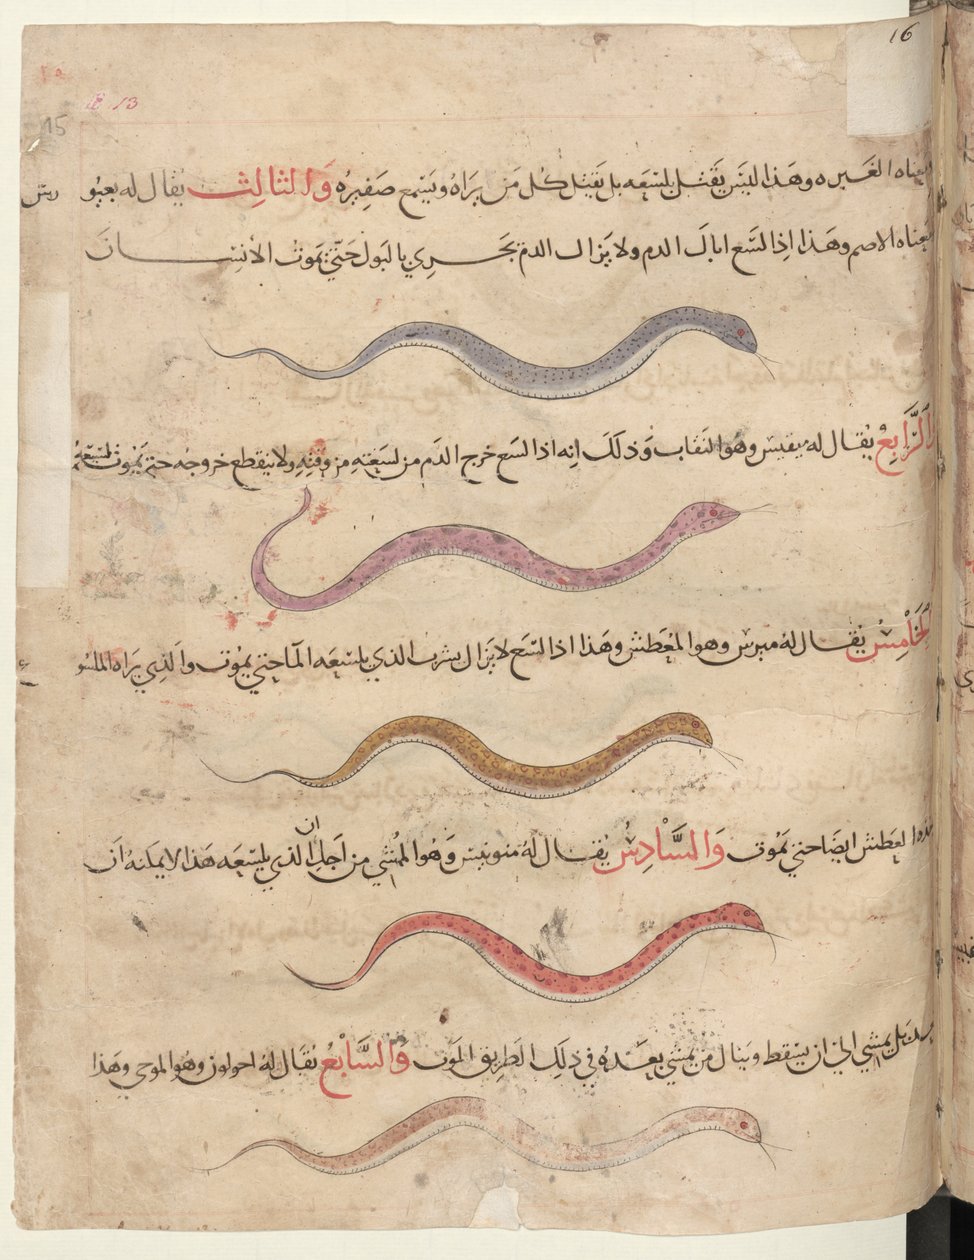 16
13
15
معناه الغبيره وهذا ليس يقتل بلسعه بل يقتل كل من يراه ويسمع صفيره والثالث يقال له بعبو
معناه الاصم وهذا اذا لسع ابال الدم ولا يزال الدم يجري بالبول حتى يموت الانسان
الرابع يقال له وهو النقاب وذلك انه اذا لسع خرج الدم من لسعته من وقته ولا ينقطع خروجه حتى يموت
الخامس يقال له ميرس وهو المعطش وهذا اذا لسع لا يزال يشرب الذي يلسعه الما حتى يموت والذي يراه
العطش ايضا حتى يموت والسادس يقال له وهو الممشي من اجل ان الذي يلسعه هذا لا يمكنه ان
بل يمشي الى ان يسقط وينال من يمشي بعده في ذلك الطريق الموت والسابع يقال له احولون وهو الموحي وهذا